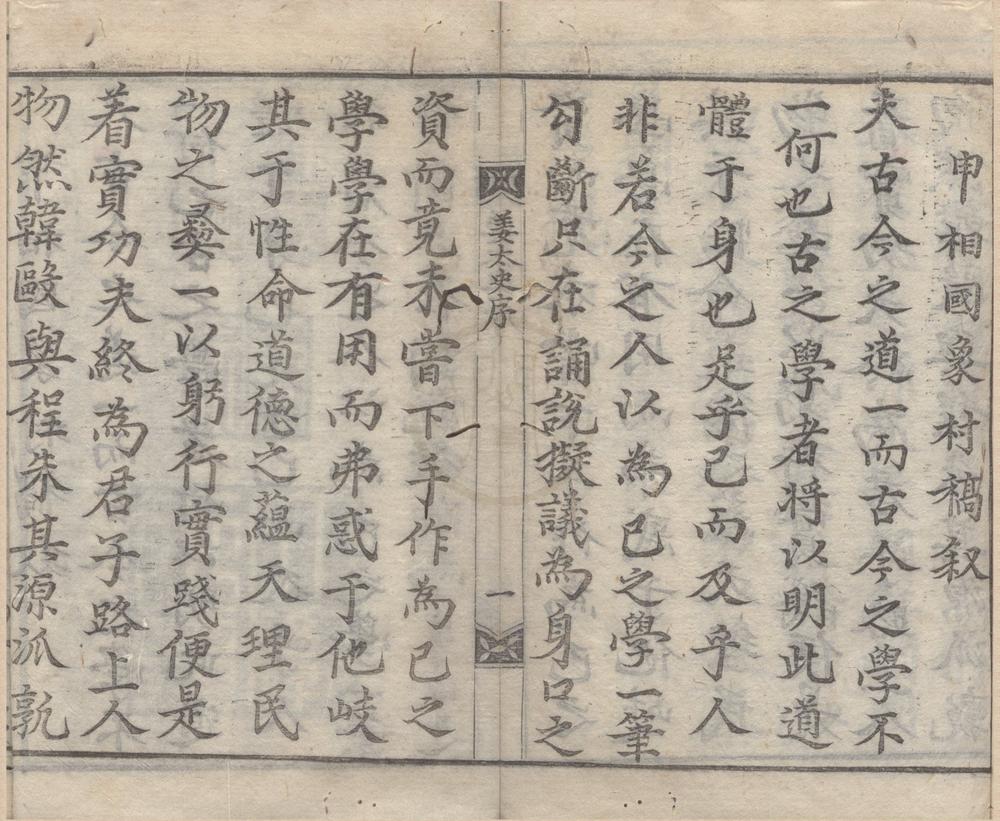 申相國象村稿叙
夫古今之道一而古今之學不
一何也古之學者将以明此道
體于身也足乎己而及乎人
非若今之人以為己之學一筆
勾斷只在誦說擬議為身口之
姜太史序
一
資而竟未嘗下手作為己之
學學在有用而弗惑于他岐
其于性命道德之蘊天理民
物之彛一以躬行實踐便是
着實功夫終為君子路上人
物然韓歐與程朱其源派孰